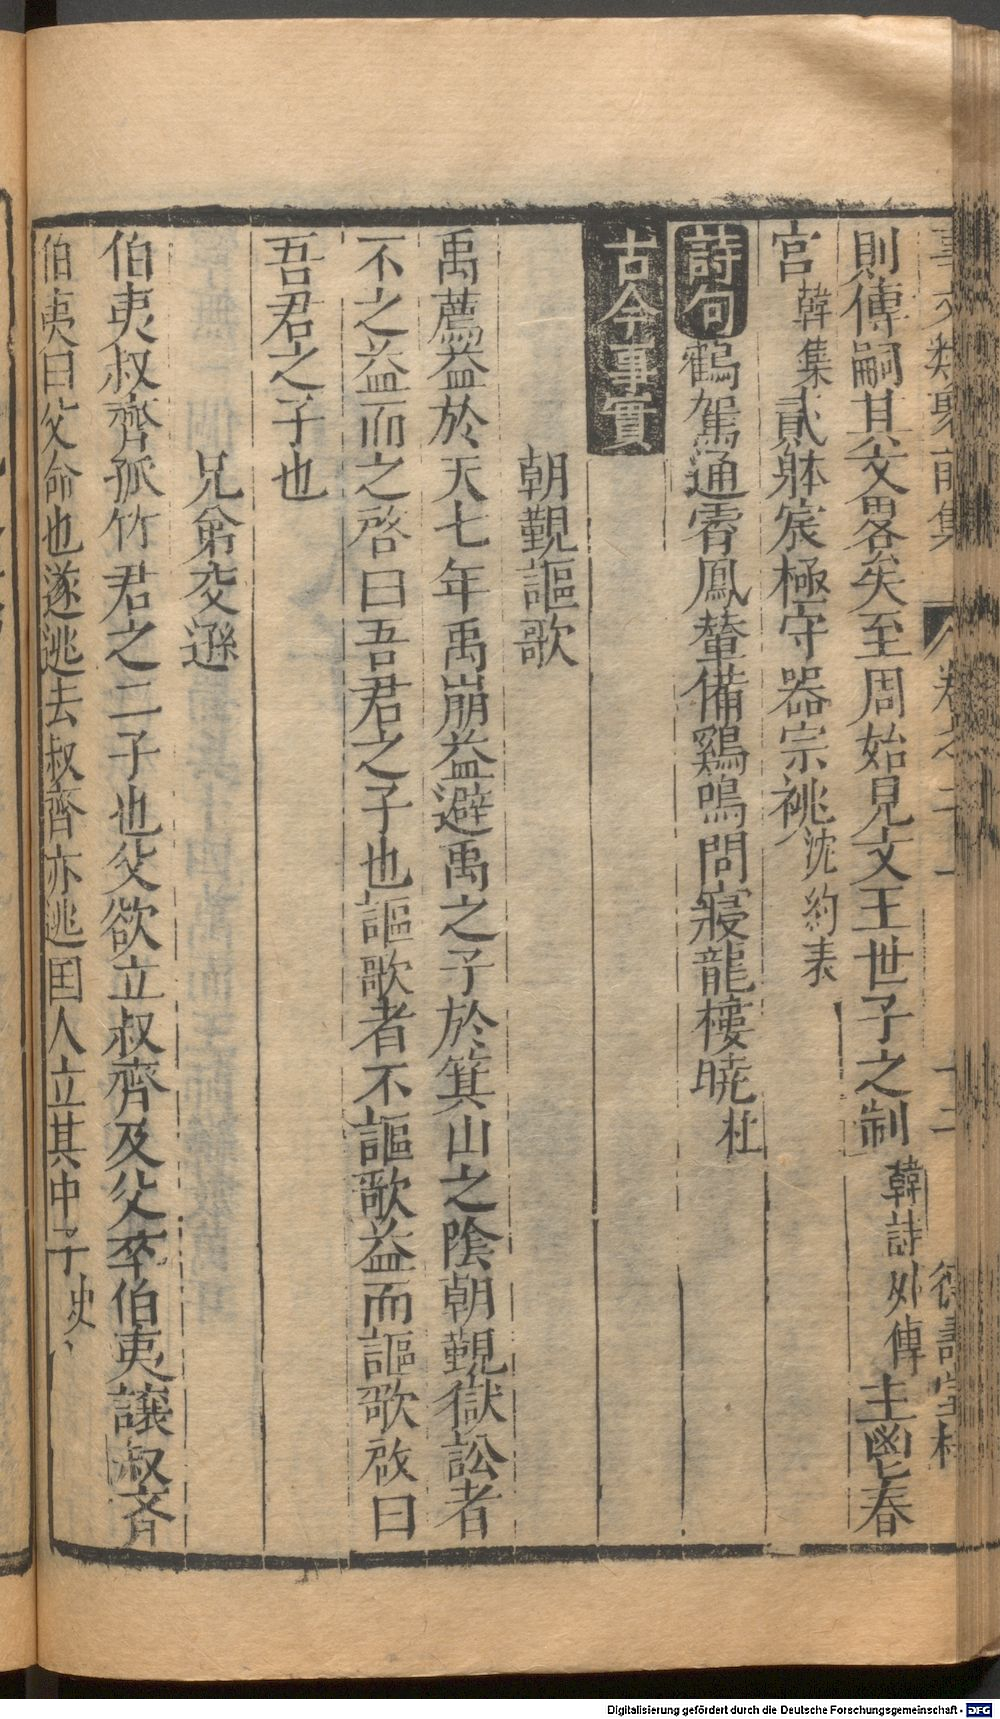 事文類聚前集 卷之二十一 十二 德壽堂梓
則傳嗣其文畧矣至周始見文王世子之制韓詩外傳主鬯春
宮韓集貳躰宸極守器宗祧沈約表
詩句鶴駕通霄鳳輦備鷄鳴問寢龍樓曉杜
古今事實
朝覲謳歌
禹薦益於天七年禹崩益避禹之子於箕山之陰朝覲獄訟者
不之益而之啓曰吾君之子也謳歌者不謳歌益而謳歌啟曰
吾君之子也
兄弟交遜
伯夷叔齊孤竹君之二子也父欲立叔齊及父卒伯夷讓叔斉
伯夷曰父命也遂逃去叔齊亦逃囯人立其中子史、
Digitalisierung gefördert durch die Deutsche Forschungsgemeinschaft - DFG